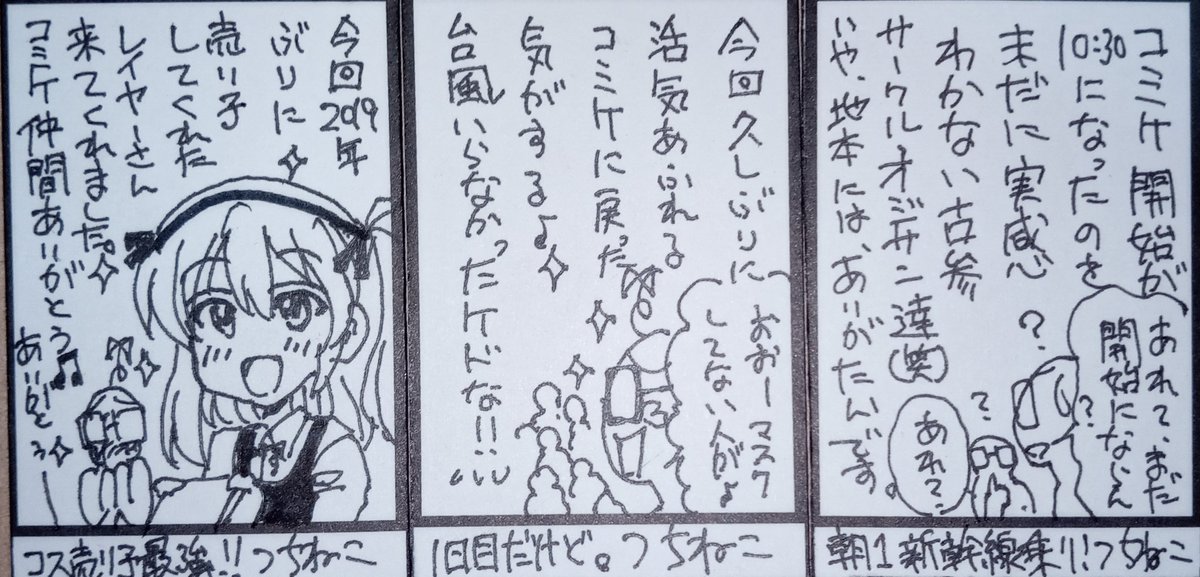 コミケ開始が
10:30になったのを
未だに実感
わかない古参
サークルオジサン達(笑)
いや、地本には、ありがたいんです。
あれて、まだ
開始になんえ
?
?
?
あれ?
朝1新幹線乗り!!つちねこ
今回久しぶりに
活気あふれる
コミケに戻った
気がするよ
台風いらなかったケドな!!
おおーマスク
してない人がよ
1日目だけど。つちねこ
今回2019年
ぶりに
売り子
してくれた
レイヤーさん
来てくれました。
コミケ仲間ありがとう
ありがとうー
コス売り子最強!!つちねこ